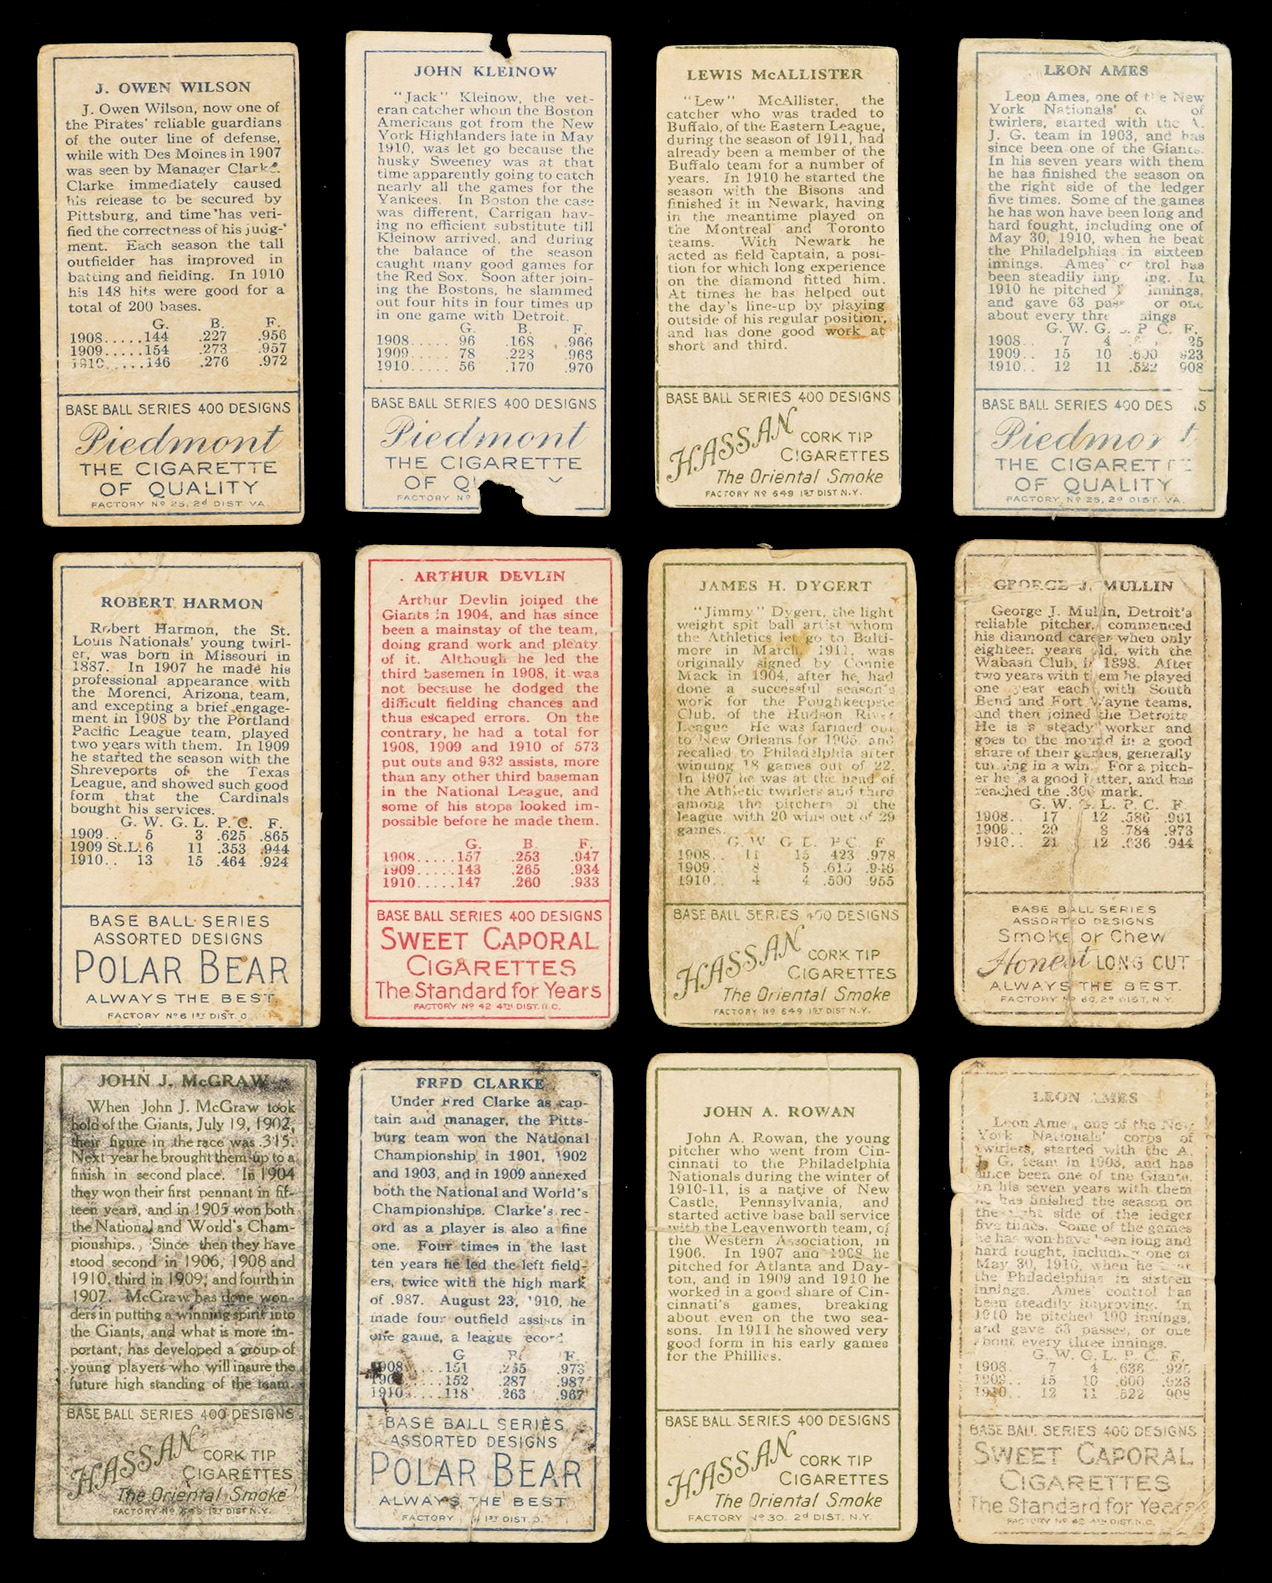 J. OWEN WILSON
J. Owen Wilson, now one of
the Pirates' reliable guardians
of the outer line of defense,
while with Des Moines in 1907
was seen by Manager Clarke.
Clarke immediately caused
his release to be secured by
Pittsburg, and time has veri-
fied the correctness of his judg-
ment. Each season the tall
outfielder has improved in
batting and fielding. In 1910
his 148 hits were good for a
total of 200 bases.
G. B. F.
1908.....144 .227 .956
1909.....154 .273 .957
1910.....146 .276 .972
BASE BALL SERIES 400 DESIGNS
Piedmont
THE CIGARETTE
OF QUALITY
FACTORY Nº 25, 2d DIST. VA.
JOHN KLEINOW
"Jack" Kleinow, the vet-
eran catcher whom the Boston
Americans got from the New
York Highlanders late in May
1910, was let go because the
husky Sweeney was at that
time apparently going to catch
nearly all the games for the
Yankees. In Boston the case
was different, Carrigan hav-
ing no efficient substitute till
Kleinow arrived, and during
the balance of the season
caught many good games for
the Red Sox. Soon after join-
ing the Bostons, he slammed
out four hits in four times up
in one game with Detroit.
G. B. F.
1908..... 96 .168 .966
1909..... 78 .228 .963
1910..... 56 .170 .970
BASE BALL SERIES 400 DESIGNS
Piedmont
THE CIGARETTE
OF
FACTORY Nº
LEWIS McALLISTER
"Lew" McAllister, the
catcher who was traded to
Buffalo, of the Eastern League,
during the season of 1911, had
already been a member of the
Buffalo team for a number of
years. In 1910 he started the
season with the Bisons and
finished it in Newark, having
in the meantime played on
the Montreal and Toronto
teams. With Newark he
acted as field captain, a posi-
tion for which long experience
on the diamond fitted him.
At times he has helped out
the day's line-up by playing
outside of his regular position,
and has done good work at
short and third.
BASE BALL SERIES 400 DESIGNS
HASSAN CORK TIP
CIGARETTES
The Oriental Smoke
FACTORY Nº 649 1st DIST N.Y.
LEON AMES
Leon Ames, one of the New
York Nationals' of
twirlers, started with the A.
J. G. team in 1903, and has
since been one of the Giants.
In his seven years with them
he has finished the season on
the right side of the ledger
five times. Some of the games
he has won have been long and
hard fought, including one of
May 30, 1910, when he beat
the Philadelphias in sixteen
innings. Ames' control has
been steadily In
1910 he pitched innings,
and gave 63 or one
about every
G. W. G. L. P. C. F.
1908.. 7 4
1909.. 15 10 .600 923
1910.. 12 11 .522 908
BASE BALL SERIES 400 DESIGNS
Piedmont
THE CIGARETTE
OF QUALITY
FACTORY Nº 25, 2d DIST. VA.
ROBERT HARMON
Robert Harmon, the St.
Louis Nationals' young twirl-
er, was born in Missouri in
1887. In 1907 he made his
professional appearance with
the Morenci, Arizona, team,
and excepting a brief engage-
ment in 1908 by the Portland
Pacific League team, played
two years with them. In 1909
he started the season with the
Shreveports of the Texas
League, and showed such good
form that the Cardinals
bought his services.
G. W. G. L. P. C. F.
1909.. 5 3 .625 .865
1909 St.L. 6 11 .353 .944
1910.. 13 15 .464 .924
BASE BALL SERIES
ASSORTED DESIGNS
POLAR BEAR
ALWAYS THE BEST.
FACTORY Nº 6 1st DIST. O.
ARTHUR DEVLIN
Arthur Devlin joined the
Giants in 1904, and has since
been a mainstay of the team,
doing grand work and plenty
of it. Although he led the
third basemen in 1908, it was
not because he dodged the
difficult fielding chances and
thus escaped errors. On the
contrary, he had a total for
1908, 1909 and 1910 of 573
put outs and 932 assists, more
than any other third baseman
in the National League, and
some of his stops looked im-
possible before he made them.
G. B. F.
1908.....157 .253 .947
1909.....143 .265 .934
1910.....147 .260 .933
BASE BALL SERIES 400 DESIGNS
SWEET CAPORAL
CIGARETTES
The Standard for Years
FACTORY Nº 42 4th DIST. N.C.
JAMES H. DYGERT
"Jimmy" Dygert, the light
weight spit ball artist whom
the Athletics let go to Balti-
more in March, 1911, was
originally signed by Connie
Mack in 1904, after he had
done a successful season's
work for the Poughkeepsie
Club, of the Hudson River
League. He was farmed out
to New Orleans for 1905 and
recalled to Philadelphia after
winning 18 games out of 22.
In 1907 he was at the head of
the Athletic twirlers and third
among the pitchers of the
league with 20 wins out of 29
games.
G. W. G. L. P C F.
1908.. 11 15 423 .978
1909.. 8 5 .615 .946
1910.. 4 4 .500 .955
BASE BALL SERIES 400 DESIGNS
HASSAN CORK TIP
CIGARETTES
The Oriental Smoke
FACTORY Nº 649 1st DIST N.Y.
GEORGE J. MULLIN
George J. Mullin, Detroit's
reliable pitcher, commenced
his diamond career when only
eighteen years old, with the
Wabash Club, in 1898. After
two years with them he played
one year each with South
Bend and Fort Wayne teams,
and then joined the Detroits.
He is a steady worker and
goes to the mound in a good
share of their games, generally
turning in a win. For a pitch-
er he is a good hitter, and has
reached the .300 mark.
G. W. G. L. P. C. F.
1908.. 17 12 .586 .961
1909.. 29 8 .784 .973
1910.. 21 12 .636 .944
BASE BALL SERIES
ASSORTED DESIGNS
Smoke or Chew
Honest LONG CUT
ALWAYS THE BEST.
FACTORY Nº 60, 2d DIST, N.Y.
JOHN J. McGRAW
When John J. McGraw took
hold of the Giants, July 19, 1902,
their figure in the race was .315.
Next year he brought them up to a
finish in second place. In 1904
they won their first pennant in fif-
teen years, and in 1905 won both
the National and World's Cham-
pionships. Since then they have
stood second in 1906, 1908 and
1910, third in 1909, and fourth in
1907. McGraw has done won-
ders in putting a winning spirit into
the Giants, and what is more im-
portant, has developed a group of
young players who will insure the
future high standing of the team.
BASE BALL SERIES 400 DESIGNS
HASSAN CORK TIP
CIGARETTES
The Oriental Smoke
FACTORY Nº 649 1st DIST N.Y.
FRED CLARKE
Under Fred Clarke as cap-
tain and manager, the Pitts-
burg team won the National
Championship in 1901, 1902
and 1903, and in 1909 annexed
both the National and World's
Championships. Clarke's rec-
ord as a player is also a fine
one. Four times in the last
ten years he led the left field-
ers, twice with the high mark
of .987. August 23, 1910, he
made four outfield assists in
one game, a league record.
G B. F.
1908.....151 .265 .973
1909.....152 .287 .987
1910.....118 .263 .967
BASE BALL SERIES
ASSORTED DESIGNS
POLAR BEAR
ALWAYS THE BEST
FACTORY 1st DIST. O.
JOHN A. ROWAN
John A. Rowan, the young
pitcher who went from Cin-
cinnati to the Philadelphia
Nationals during the winter of
1910-11, is a native of New
Castle, Pennsylvania, and
started active base ball service
with the Leavenworth team, of
the Western Association, in
1906. In 1907 and 1908 he
pitched for Atlanta and Day-
ton, and in 1909 and 1910 he
worked in a good share of Cin-
cinnati's games, breaking
about even on the two sea-
sons. In 1911 he showed very
good form in his early games
for the Phillies.
BASE BALL SERIES 400 DESIGNS
HASSAN CORK TIP
CIGARETTES
The Oriental Smoke
FACTORY Nº 30. 2d DIST. N.Y.
LEON AMES
Leon Ames, one of the New
York Nationals' corps of
twirlers, started with the A.
J. G. team in 1903, and has
since been one of the Giants.
In his seven years with them
he has finished the season on
the right side of the ledger
five times. Some of the games
he has won have been long and
hard fought, including one of
May 30, 1910, when he beat
the Philadelphias in sixteen
innings. Ames control has
been steadily improving. In
1910 he pitched 190 innings,
and gave 63 passes, or one
about every three innings.
G. W. G. L. P. C. F.
1908.. 7 4 .636 .925
1909.. 15 10 .600 .923
1910.. 12 11 .522 908
BASE BALL SERIES 400 DESIGNS
SWEET CAPORAL
CIGARETTES
The Standard for Years
FACTORY Nº 42 4th DIST. N.C.